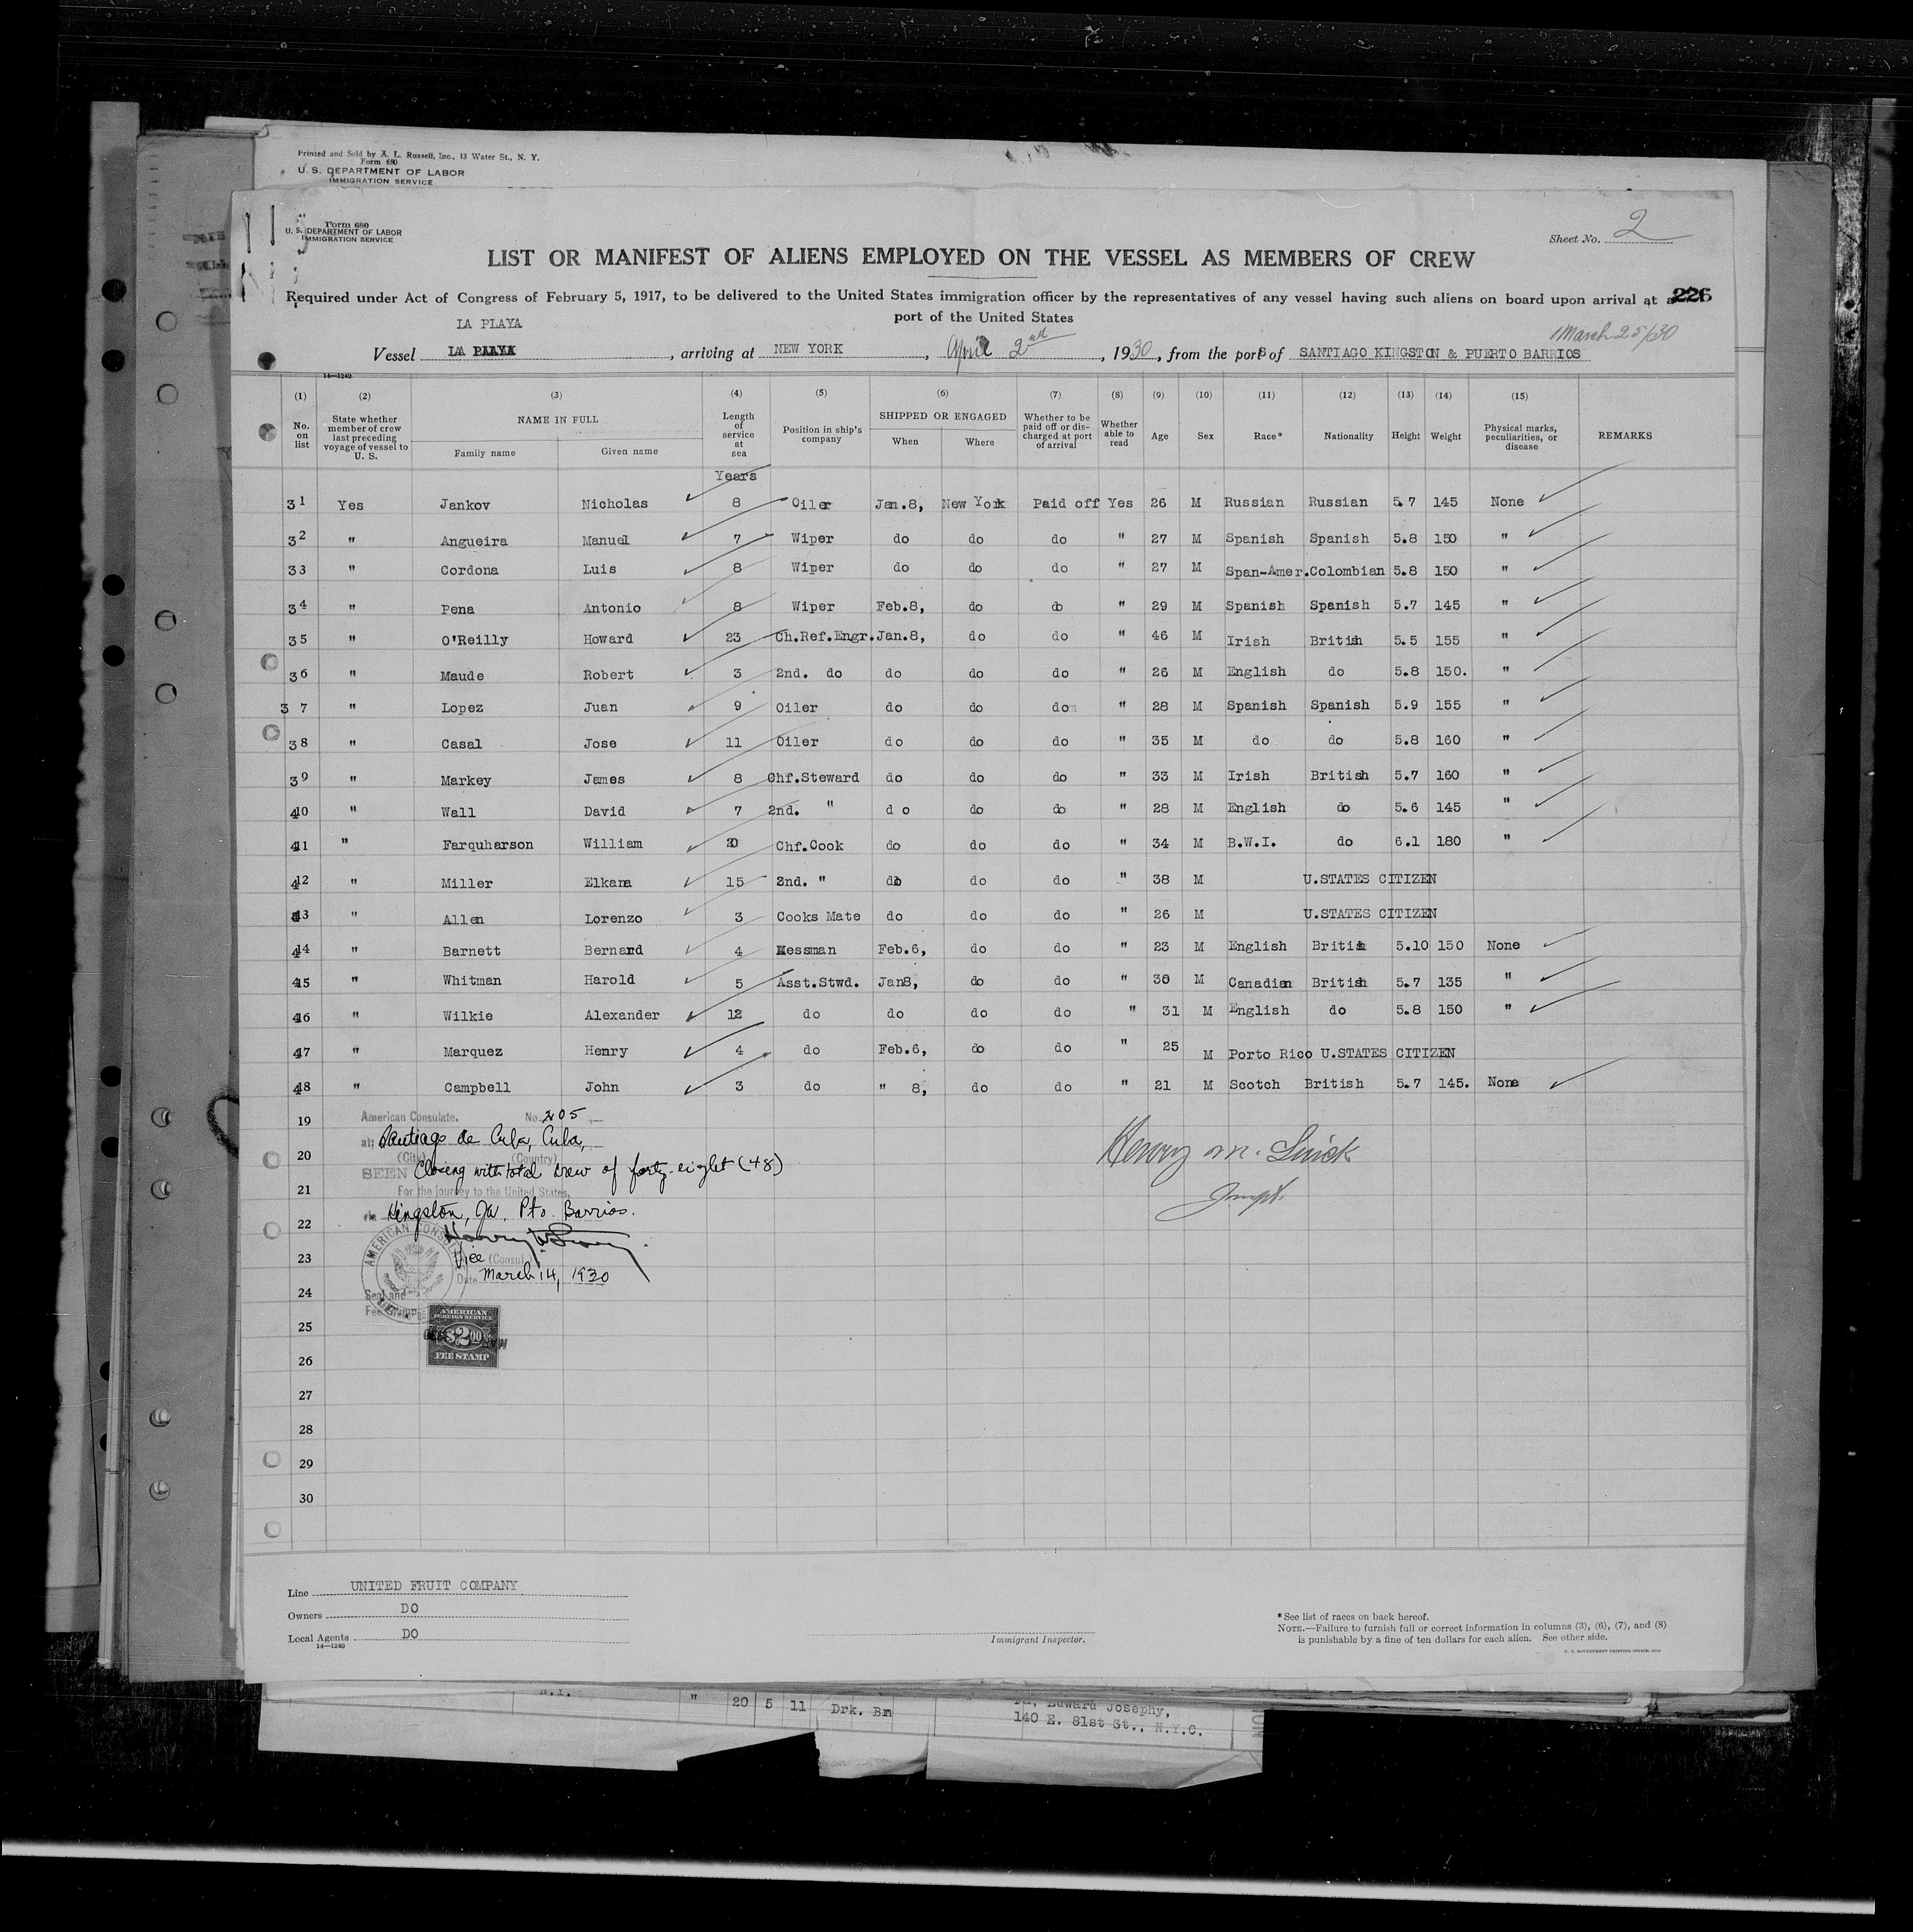 Printed and Sold by A. L. Russell, Inc., 13 Water St., N. Y.
Form 680
U. S. DEPARTMENT OF LABOR
IMMIGRATION SERVICE
Form 680
U. S. DEPARTMENT OF LABOR
IMMIGRATION SERVICE
Sheet No. 2
LIST OR MANIFEST OF ALIENS EMPLOYED ON THE VESSEL AS MEMBERS OF CREW
Required under Act of Congress of February 5, 1917, to be delivered to the United States immigration officer by the representatives of any vessel having such aliens on board upon arrival at a 226
port of the United States
LA PLAYA
March 25/30
Vessel LA PLAYA, arriving at NEW YORK, April 2nd, 1930, from the ports of SANTIAGO KINGSTON & PUERTO BARRIOS
14—1240
(1) (2) (3) (4) (5) (6) (7) (8) (9) (10) (11) (12) (13) (14) (15)
No. on list State whether member of crew last preceding voyage of vessel to U. S. NAME IN FULL Family name Given name Length of service at sea Position in ship's company SHIPPED OR ENGAGED When Where Whether to be paid off or discharged at port of arrival Whether able to read Age Sex Race* Nationality Height Weight Physical marks, peculiarities, or disease REMARKS
Years
31 Yes Jankov Nicholas 8 Oiler Jan.8, New York Paid off Yes 26 M Russian Russian 5.7 145 None
32 " Angueira Manuel 7 Wiper do do do " 27 M Spanish Spanish 5.8 150 "
33 " Cordona Luis 8 Wiper do do do " 27 M Span-Amer. Colombian 5.8 150 "
34 " Pena Antonio 8 Wiper Feb.8, do do " 29 M Spanish Spanish 5.7 145 "
35 " O'Reilly Howard 23 Ch.Ref.Engr. Jan.8, do do " 46 M Irish British 5.5 155 "
36 " Maude Robert 3 2nd. do do do do " 26 M English do 5.8 150. "
37 " Lopez Juan 9 Oiler do do do " 28 M Spanish Spanish 5.9 155 "
38 " Casal Jose 11 Oiler do do do " 35 M do do 5.8 160 "
39 " Markey James 8 Chf.Steward do do do " 33 M Irish British 5.7 160 "
40 " Wall David 7 2nd. " do do do " 28 M English do 5.6 145 "
41 " Farquharson William 20 Chf.Cook do do do " 34 M B.W.I. do 6.1 180 "
42 " Miller Elkana 15 2nd. " do do do " 38 M U.STATES CITIZEN
43 " Allen Lorenzo 3 Cooks Mate do do do " 26 M U.STATES CITIZEN
44 " Barnett Bernard 4 Messman Feb.6, do do " 23 M English British 5.10 150 None
45 " Whitman Harold 5 Asst.Stwd. Jan8, do do " 30 M Canadian British 5.7 135 "
46 " Wilkie Alexander 12 do do do do " 31 M English do 5.8 150 "
47 " Marquez Henry 4 do Feb.6, do do " 25 M Porto Rico U.STATES CITIZEN
48 " Campbell John 3 do " 8, do do " 21 M Scotch British 5.7 145. None
19
20
21
22
23
24
25
26
27
28
29
30
American Consulate. No. 205
at; Santiago de Cuba, Cuba,
(City) (Country)
SEEN Closing with total crew of forty-eight (48)
For the journey to the United States,
via Kingston, Ja, Pto. Barrios.
Vice (Consul)
Date March 14, 1930
Seal and
AMERICAN
FOREIGN SERVICE
$2.00
FEE STAMP
Henry M.
Line UNITED FRUIT COMPANY
Owners DO
Local Agents DO
14—1240
Immigrant Inspector.
*See list of races on back hereof.
NOTE.—Failure to furnish full or correct information in columns (3), (6), (7), and (8)
is punishable by a fine of ten dollars for each alien. See other side.
U. S. GOVERNMENT PRINTING OFFICE
N.Y. " 20 5 11 Drk. Bn
Edward Josephy,
140 E. 81st St., N.Y.C.